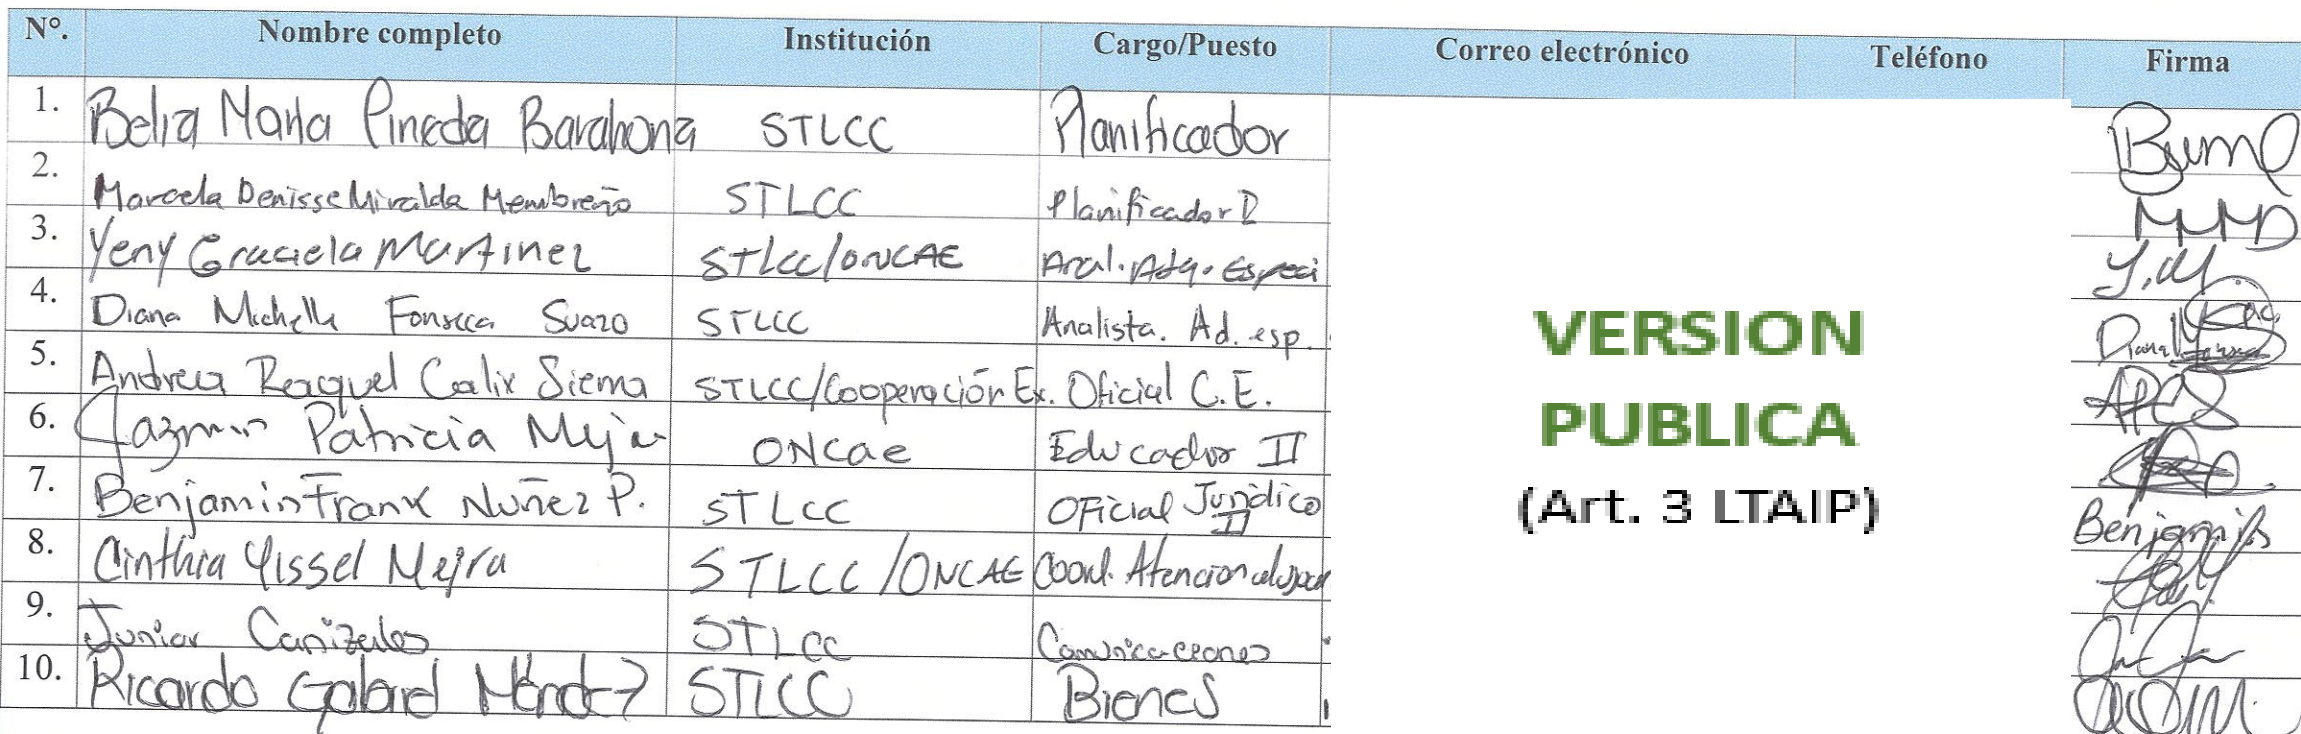 N°. Nombre completo Institución Cargo/Puesto Correo electrónico Teléfono Firma
1. Belia Maria Pineda Barahona STLCC Planificador
2. Marcela Denisse Miralda Membreño STLCC Planificador
3. Yeny Graciela Martinez STLCC/ONCAE Anal. Adq. Especi
4. Diana Michelle Fonseca Suazo STLCC Analista. Ad. esp. Diana
5. Andrea Raquel Calix Sierra STLCC/Cooperación Ex. Oficial C.E.
6. Jazmin Patricia Mejia ONCae Educador II
7. Benjamin Frank Nuñez P. STLCC Oficial Jurídico II
8. Cinthia Yissel Mejia STLCC/ONCAE Coord. Atencion
9. Junior Canizales STLCC Comunicaciones
10. Ricardo Mendez STLCC Bienes
VERSION
PUBLICA
(Art. 3 LTAIP)